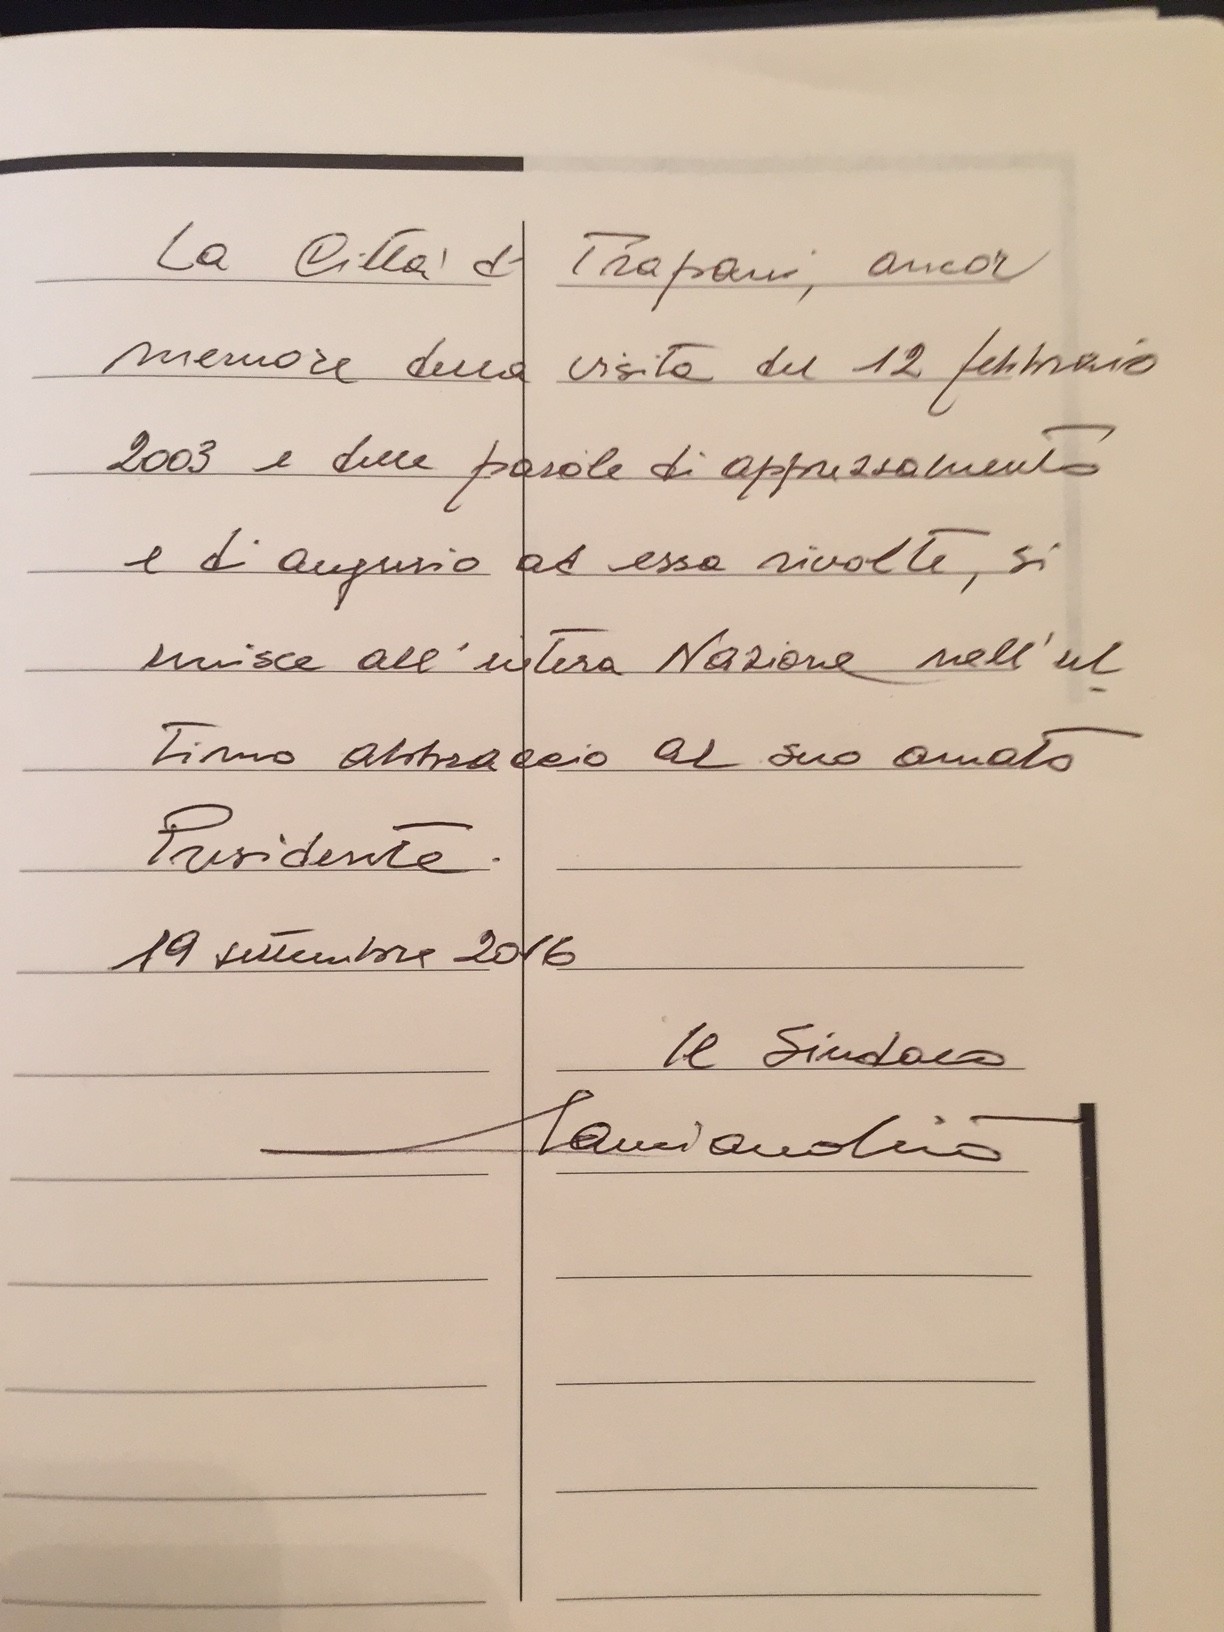 La Città di Trapani, ancor
memore della visita del 12 febbraio
2003 e delle parole di apprezzamento
e di augurio ad essa rivolte, si
unisce all'intera Nazione nell'ul
timo abbraccio al suo amato
Presidente.
19 settembre 2016
Il Sindaco